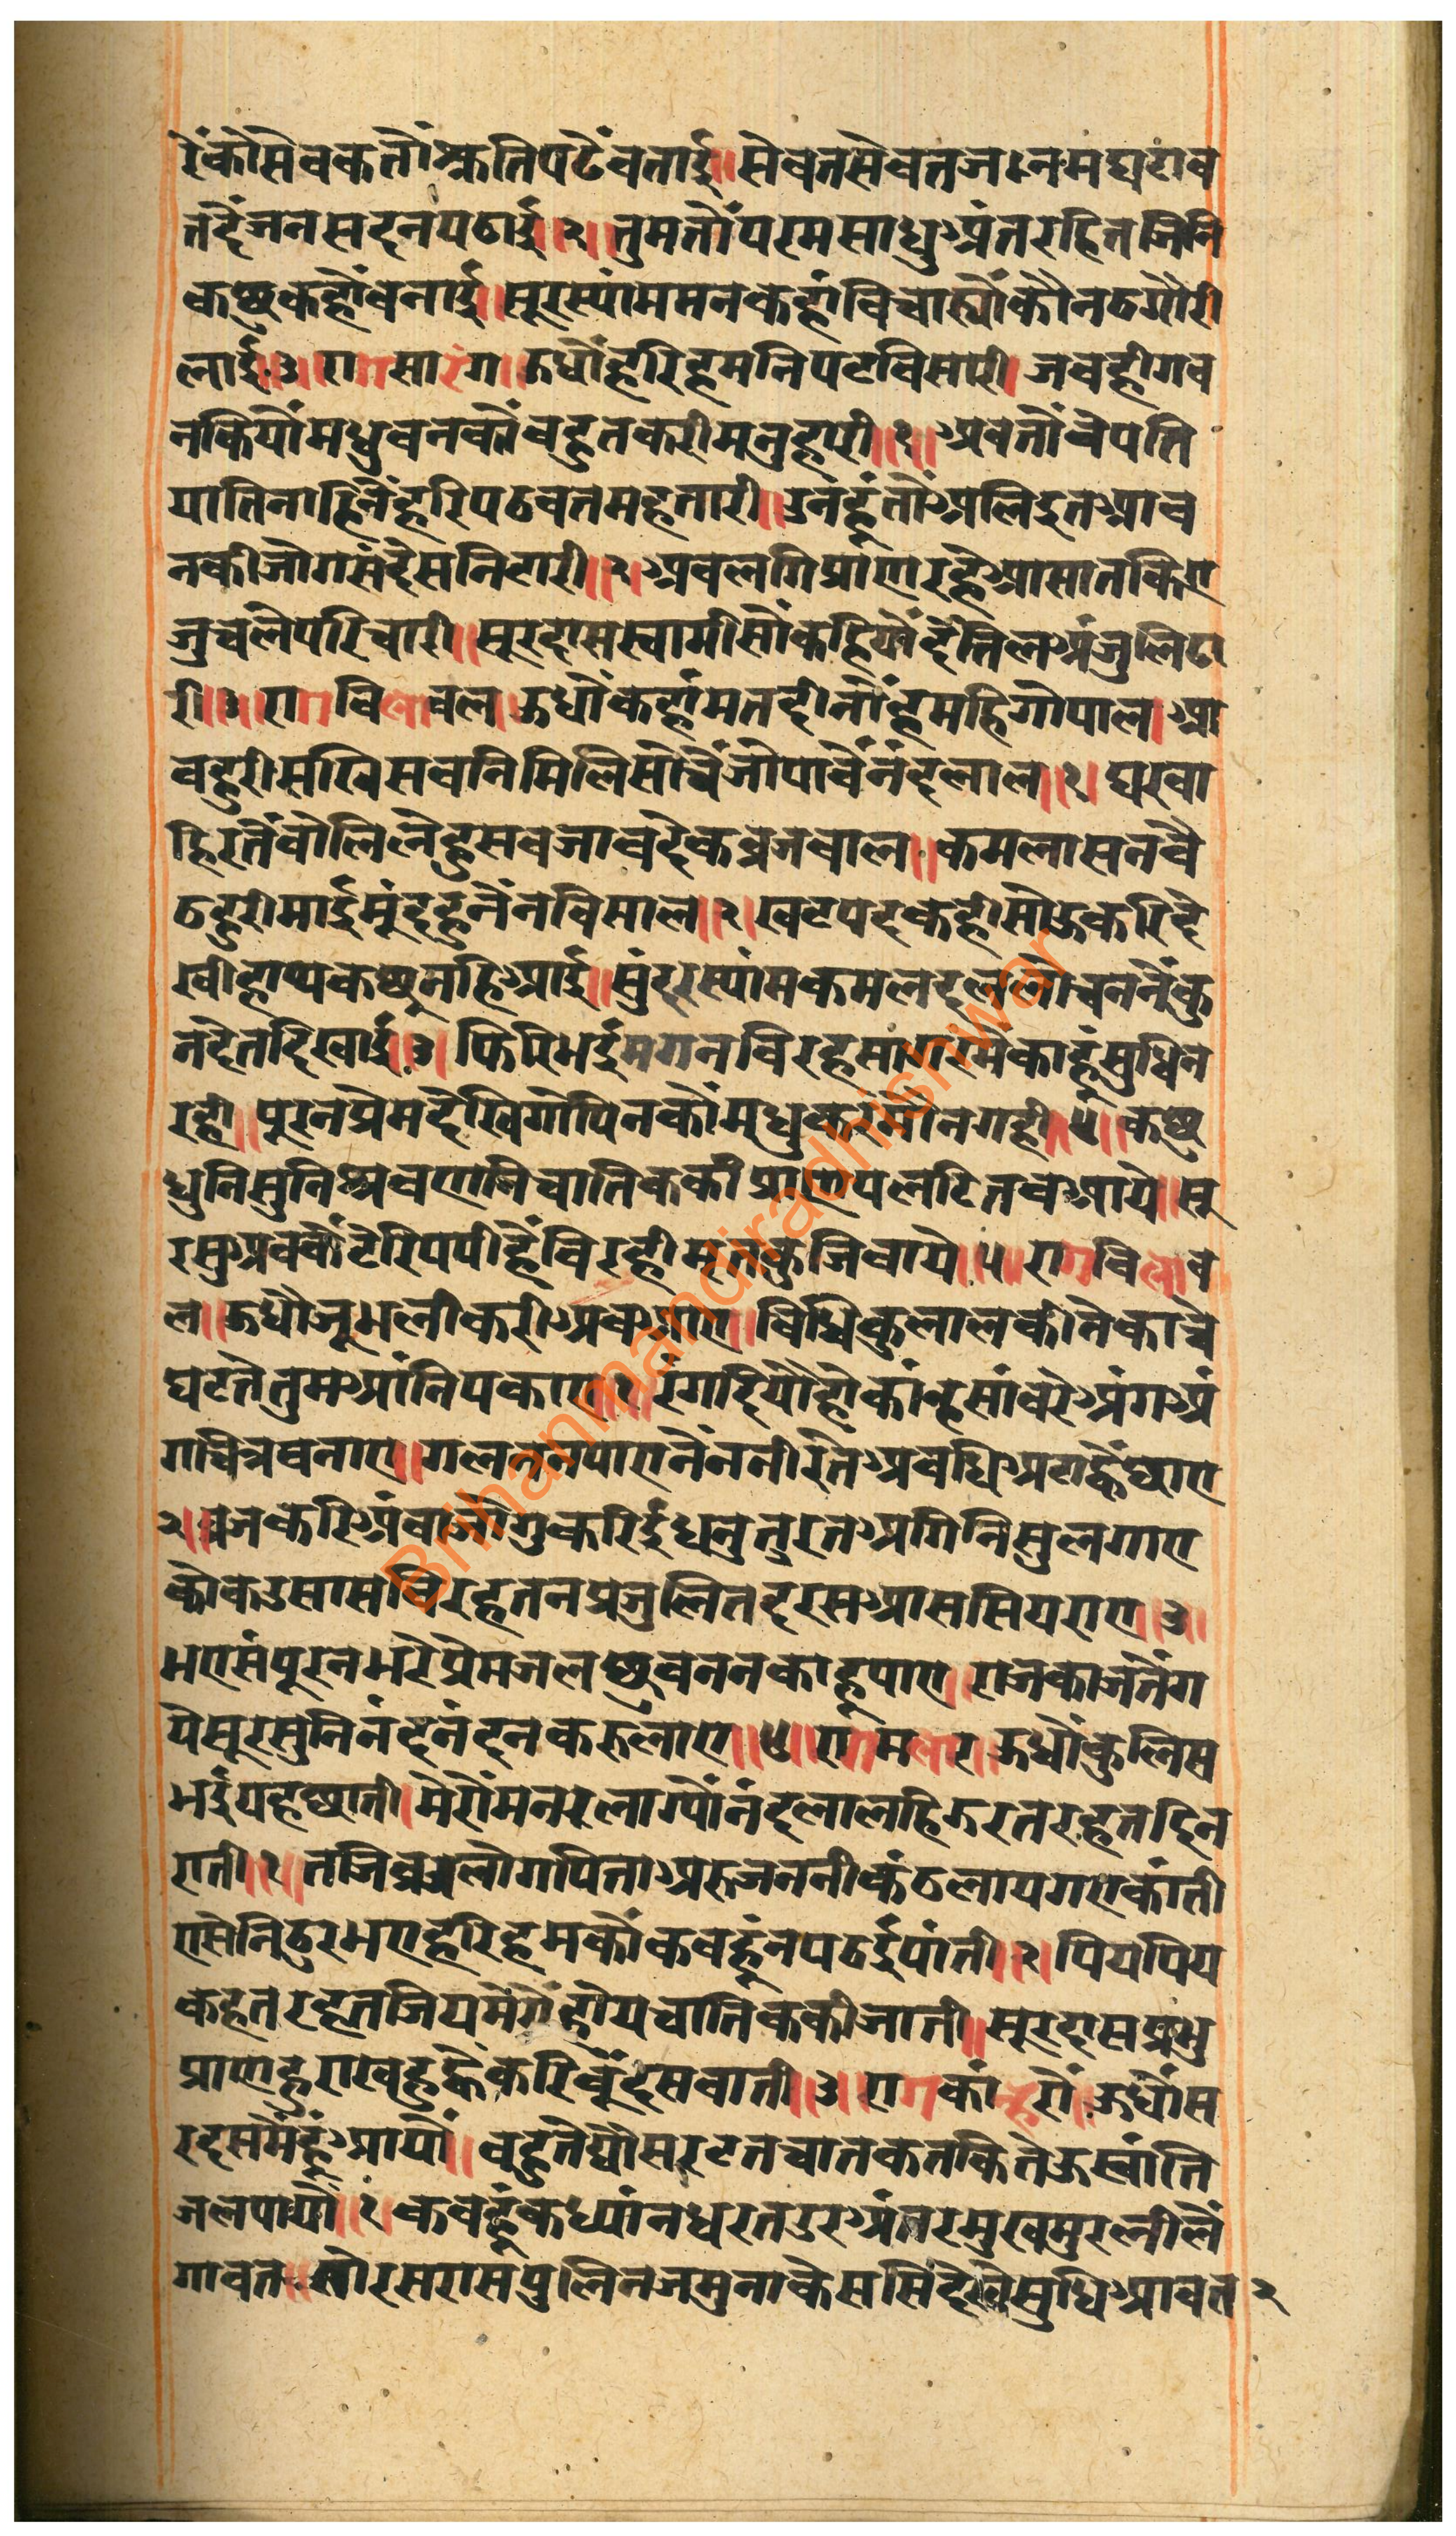 रेंकोसेवकतौंश्कतिपटेंवताई॥सेवतसेवतजनमघटाव
तहैंजनसदनपठाई॥२॥तुमतौंपरमसाधुअंतरहितजिनि
कछुकहौंवनाई॥सूरस्यांममनकहांविचार्यौंकौनठगौरी
लाई॥३॥रागसारंग॥ऊधौंहरिहमनिपटविसारी।जबहीगव
नकियौंमधुवनकौंवहुतकरीमनुहारी॥१॥अवतौंवेपति
यातिनाहिनेंहरिपठवतमहतारी॥उनहूंतौंअलिदुतआव
नकीजोगसंदेसनिटारी॥२॥अवलगिप्रांएारहेआसातकिए
जुचलेपरिचारी॥सूरदासस्वामीसौंकहियोंदेतिलअंजुलिढा
री॥३॥रागविलावल॥ऊधौंकहांमतदीनौंहमहिगोपाल।आ
वहुरीसखिसवनिमिलिसोचेंजोपावेंनंदलाल॥१॥घरवा
हिरतेंवोलिलेहुसवजावदेकव्रजवाल॥कमलासनवै
ठहुरीमाईमुंदहुनेंनविसाल॥२॥खटपदकहीसोऊकरिदे
खीहाथकछुनहिआई॥सुंदरस्यांमकमलदललोचननेंकु
नदेतदिखाई॥३॥फिरिभईमगनविरहसागरमेकाहूंसुधिन
रही॥पूरनप्रेमदेखिगोपिनकौंमधुकरमौंनगही॥४॥कछु
धुनिसुनिश्रवएानिचातिककीप्राएापलटितवआये॥सू
रसुअवकेंटेरिपपीहेंविरहीमृतकुजिवाये॥५॥रागविलाव
ल॥ऊधौंजूभलीकरीअवआए॥विधिकुलालकीनेकाचे
घटतेतुमआंनिपकाए॥१॥रंगदियौहोकांन्हसांवरेअंगअं
गचित्रवनाए॥गलतनपाएनेंननीरतेअवधिअटाह्वैछाए
२॥व्रजकरिअंवाजोगुकरिईंधनुतुरतअगिनिसुलगाए
कोकउसासविरहतनप्रजुलितदरसआससियराए॥३॥
भएसंपूरनभरेप्रेमजलछुवननकाहूपाए॥राजकाजतेंग
येसूरसुनिनंदनंदनकरुलाए॥४॥रागमलार॥ऊधौंकुलिस
भईयहछाती।मेरौंमनरुलाग्यौंनंदलालहिऊरतरहतदिन
राती॥१॥तजिव्रजलोगपिताअरुजननीकंठलायगएकांती
एसेनिठुरभएहरिहमकौंकवहूंनपठईपांती॥२॥पियपिय
कहतरहतजियमेरौंह्वोयचातिककीजाती॥सूरदासप्रभु
प्राएाहुराखहुह्वैकरिबूंदसवाती॥३॥रागकांन्हरौं॥ऊधौंस
रदसमेंहूंआयौं॥वहुतेद्यौसरटतचातकतकितेऊस्वांति
जलपायौं॥१॥कवहूंकध्यांनधरतउरअंतरमुखमुरलीलें
गावत॥सोरसरासपुलिनजमुनाकेससिदेखेंसुधिआवत२
Brihanmandiradhishwar